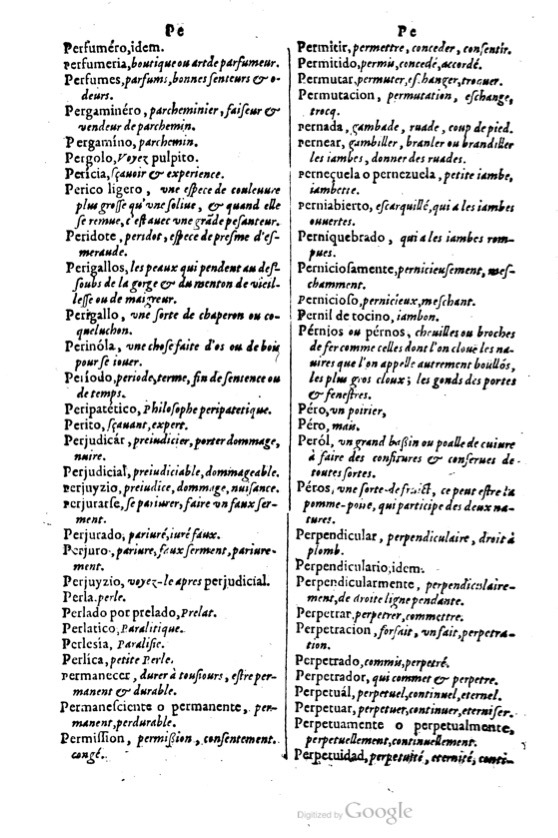 Pe
Perfuméro, idem.
Perfumeria, boutique ou art de parfumeur.
Perfumes, parfums, bonnes senteurs & o-
deurs.
Pergaminéro, parcheminier, faiseur &
vendeur de parchemin.
Pergamino, parchemin.
Pergolo, Voyez pulpito.
Pericia, sçavoir & experience.
Perico ligero, vne espece de couleuure
plus grosse qu'vne soliue, & quand elle
se remue, c'est auec vne gråde pesanteur.
Peridote, peridot, espece de presme d'es-
meraude.
Perigallos, les peaux qui pendent au des-
soubs de la gorge & du menton de vieil-
lesse ou de maigreur.
Perigallo, vne sorte de chaperon ou co-
queluchon.
Perinóla, vne chose faite d'os ou de bois
pour se iouer.
Período, periode, terme, fin de sentence ou
de temps.
Peripatético, Philosophe peripatetique.
Perito, sçauant, expert.
Perjudicár, preiudicier, porter dommage,
nuire.
Perjudicial, preiudiciable, dommageable.
perjuyzio, preiudice, dommage, nuisance.
perjurarse, se pariurer, faire vn faux ser-
ment.
Perjurado, pariuré, iuré faux.
Perjuro, pariure, faux serment, pariure-
ment.
Perjuyzio, voyez-le apres perjudicial.
Perla, perle.
Perlado por prelado, Prelat.
Perlatico, Paralitique.
Perlesía, Paralisie.
Perlica, petite Perle.
permanecer, durer à tousiours, estre per-
manent & durable.
Permanesciente o permanente, per-
manent, perdurable.
Permission, permißion, consentement.
congé.
Pe
Permitir, permettre, conceder, consentir.
Permitido, permis, concedé, accordé.
Permutar, permuter, eschanger, troquer.
Permutacion, permutation, eschange,
trocq.
pernada, gambade, ruade, coup de pied.
pernear, gambiller, branler ou brandiller
les iambes, donner des ruades.
perneçuela o pernezuela, petite iambe,
iambette.
perniabierto, escarquillé, qui a les iambes
ouuertes.
Perniquebrado, qui a les iambes rom-
pues.
Perniciosamente, pernicieusement, mes-
chamment.
Pernicioso, pernicieux, meschant.
Pernil de tocino, iambon.
Pérnios ou pérnos, cheuilles ou broches
de fer comme celles dont l'on cloue les na-
uires que l'on appelle autrement boullõs,
les plus gros cloux; les gonds des portes
& fenestres.
Péro, vn poirier,
Péro, mais.
Peról, vn grand baßin ou poalle de cuiure
à faire des confitures & conserues de
toutes sortes.
Péros, vne sorte de fruict, ce peut estre la
pomme-poire, qui participe des deux na-
tures.
Perpendicular, perpendiculaire, droit à
plomb.
Perpendiculario, idem.
Perpendicularmente, perpendiculaire-
ment, de droite ligne pendante.
Perpetrar, perpetrer, commettre.
Perpetracion, forfait, vn fait, perpetra-
tion.
Perpetrado, commis, perpetré.
Perpetrador, qui commet & perpetre.
Perpetuál, perpetuel, continuel, eternel.
Perpetuar, perpetuer, continuer, eterniser.
Perpetuamente o perpetualmente,
perpetuellement, continuellement.
Perpetuidad, perpetuité, eternité, conti-
Digitized by Google